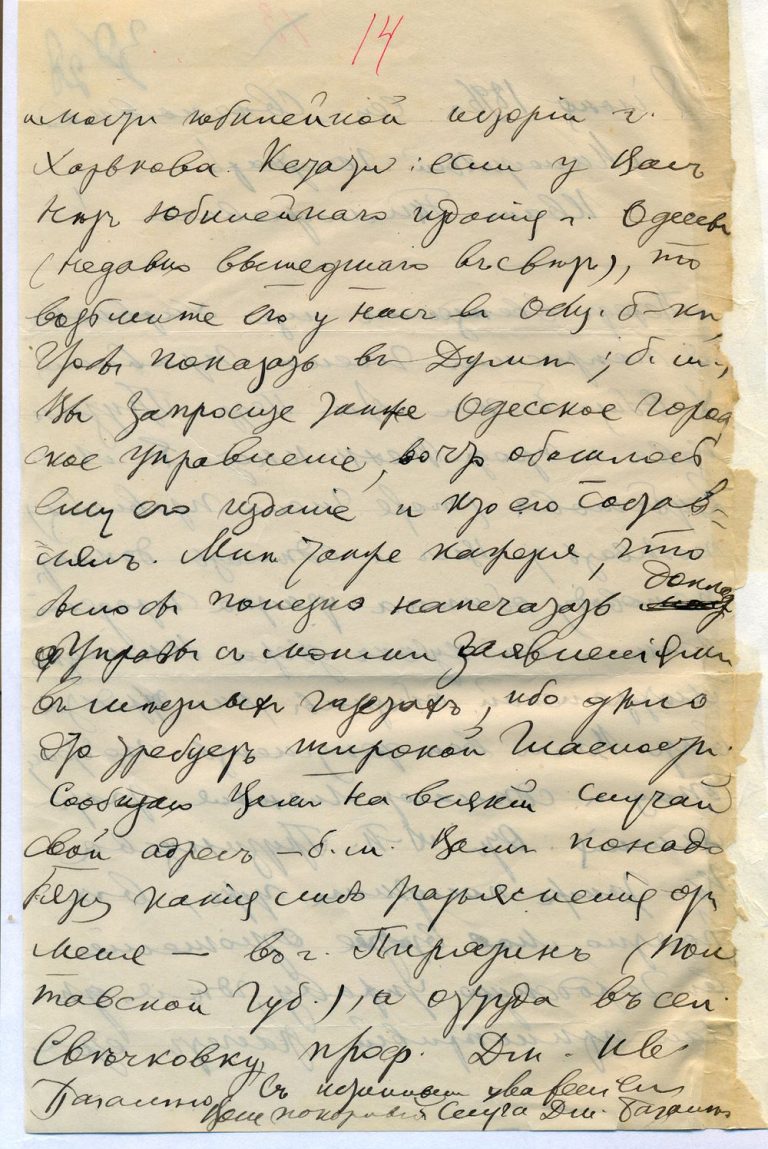 14
имости юбилейной исторіи г.
Харькова. Кстати: если у Васъ
нѣтъ юбилейнаго изданія г. Одессы
(недавно вышедшаго въ свѣтъ), то
возьмите его у насъ въ Общ. б-кѣ,
чтобы показать въ Думѣ; б. м.,
Вы запросите также Одесское город
ское управленіе, во что обошлось
ему его изданіе и кто его состав-
лялъ. Мнѣ также кажется, что
было бы полезно напечатать доклад
Управы съ моими заявленіями
въ мѣстныхъ газетахъ, ибо дѣло
это требуетъ широкой гласности.
Сообщаю Вамъ на всякій случай
свой адресъ — б. м. Вамъ понадо
бятся какія либо разъясненія отъ
меня — въ г. Пирятинъ (Пол
тавской губ.), а оттуда въ сел.
Свѣчковку, проф. Дм. Ив.
Багалѣю. Съ истиннымъ уваженіем
Вашъ покорный слуга Дм. Багалѣй